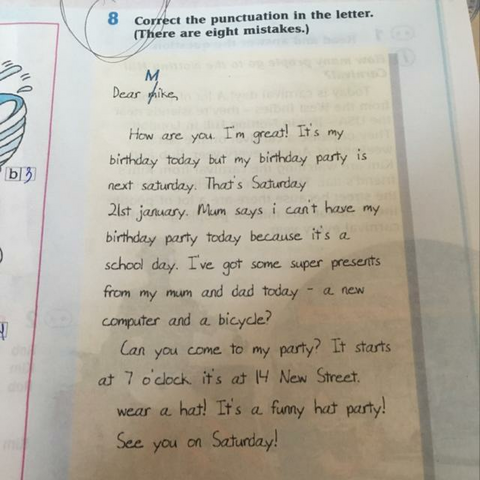 8 Correct the punctuation in the letter.
(There are eight mistakes.)
M
Dear mike,
How are you. I'm great! It's my
birthday today but my birthday party is
next saturday. That's Saturday
21st january. Mum says i can't have my
birthday party today because it's a
school day. I've got some super presents
from my mum and dad today - a new
computer and a bicycle?
Can you come to my party? It starts
at 7 o'clock it's at 14 New Street.
wear a hat! It's a funny hat party!
See you on Saturday!
b 3